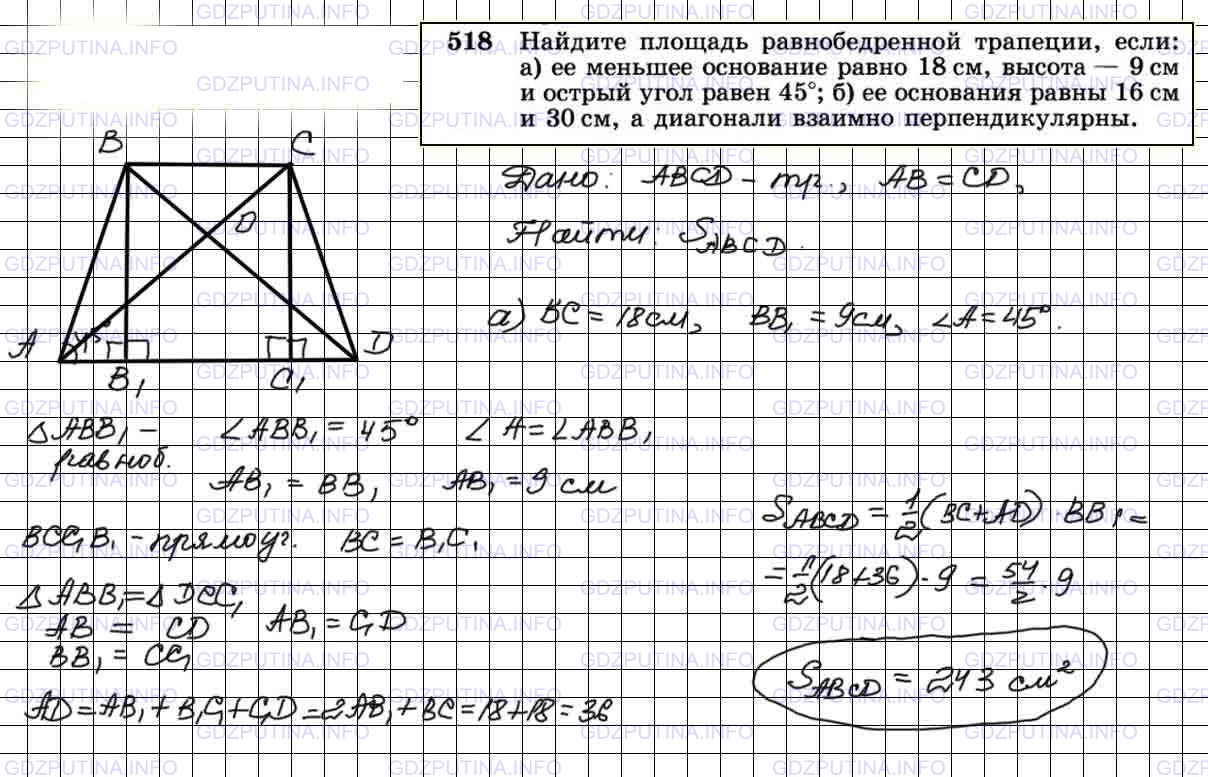 518 Найдите площадь равнобедренной трапеции, если:
а) ее меньшее основание равно 18 см, высота — 9 см
и острый угол равен 45°; б) ее основания равны 16 см
и 30 см, а диагонали взаимно перпендикулярны.
B C
O
A B₁ C₁ D
Дано: ABCD – тр., AB = CD,
Найти: S_ABCD.
а) BC = 18 см, BB₁ = 9 см, ∠A = 45°.
△ABB₁ – равноб. ∠ABB₁ = 45° ∠A = ∠ABB₁
AB₁ = BB₁ AB₁ = 9 см
BCC₁B₁ – прямоуг. BC = B₁C₁
△ABB₁ = △DCC₁
AB = CD AB₁ = C₁D
BB₁ = CC₁
AD = AB₁ + B₁C₁ + C₁D = 2AB₁ + BC = 18 + 18 = 36
S_ABCD = 1/2 (BC + AD) · BB₁ =
= 1/2 (18 + 36) · 9 = 54/2 · 9
S_ABCD = 243 см²
GDZPUTINA.INFO